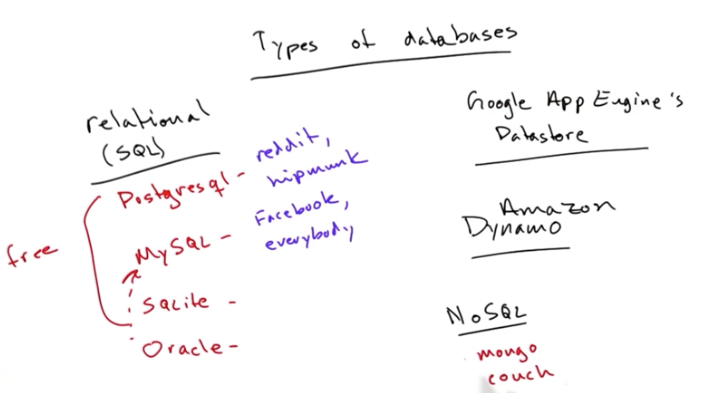 Types of databases
relational
(SQL)
free
Postgresql - reddit,
hipmunk
MySQL - Facebook,
everybody
Sqlite -
Oracle -
Google App Engine's
Datastore
Amazon
Dynamo
NoSQL
mongo
couch